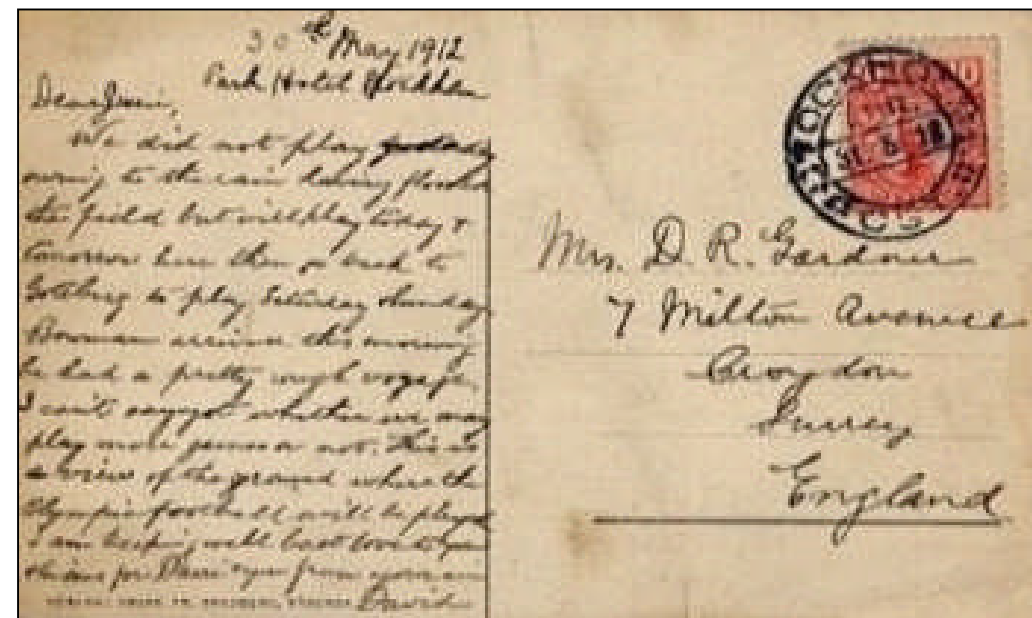 30th May 1912
Park Hotel Stockholm
Dear Jinnie,
We did not play yesterday
owing to the rain having flooded
the field but will play today &
tomorrow here then go back to
Gotberg to play Saturday & Sunday
Bowman arrives this morning
he had a pretty rough voyage
I can't say yet whether we may
play more games or not. This is
a view of the ground where the
Olympic football will be played
I am keeping well best love to
for from your own
David
STOCKHOLM
31. 5. 12
10
Mrs. D. R. Gardner
7 Milton Avenue
Croydon
Surrey
England